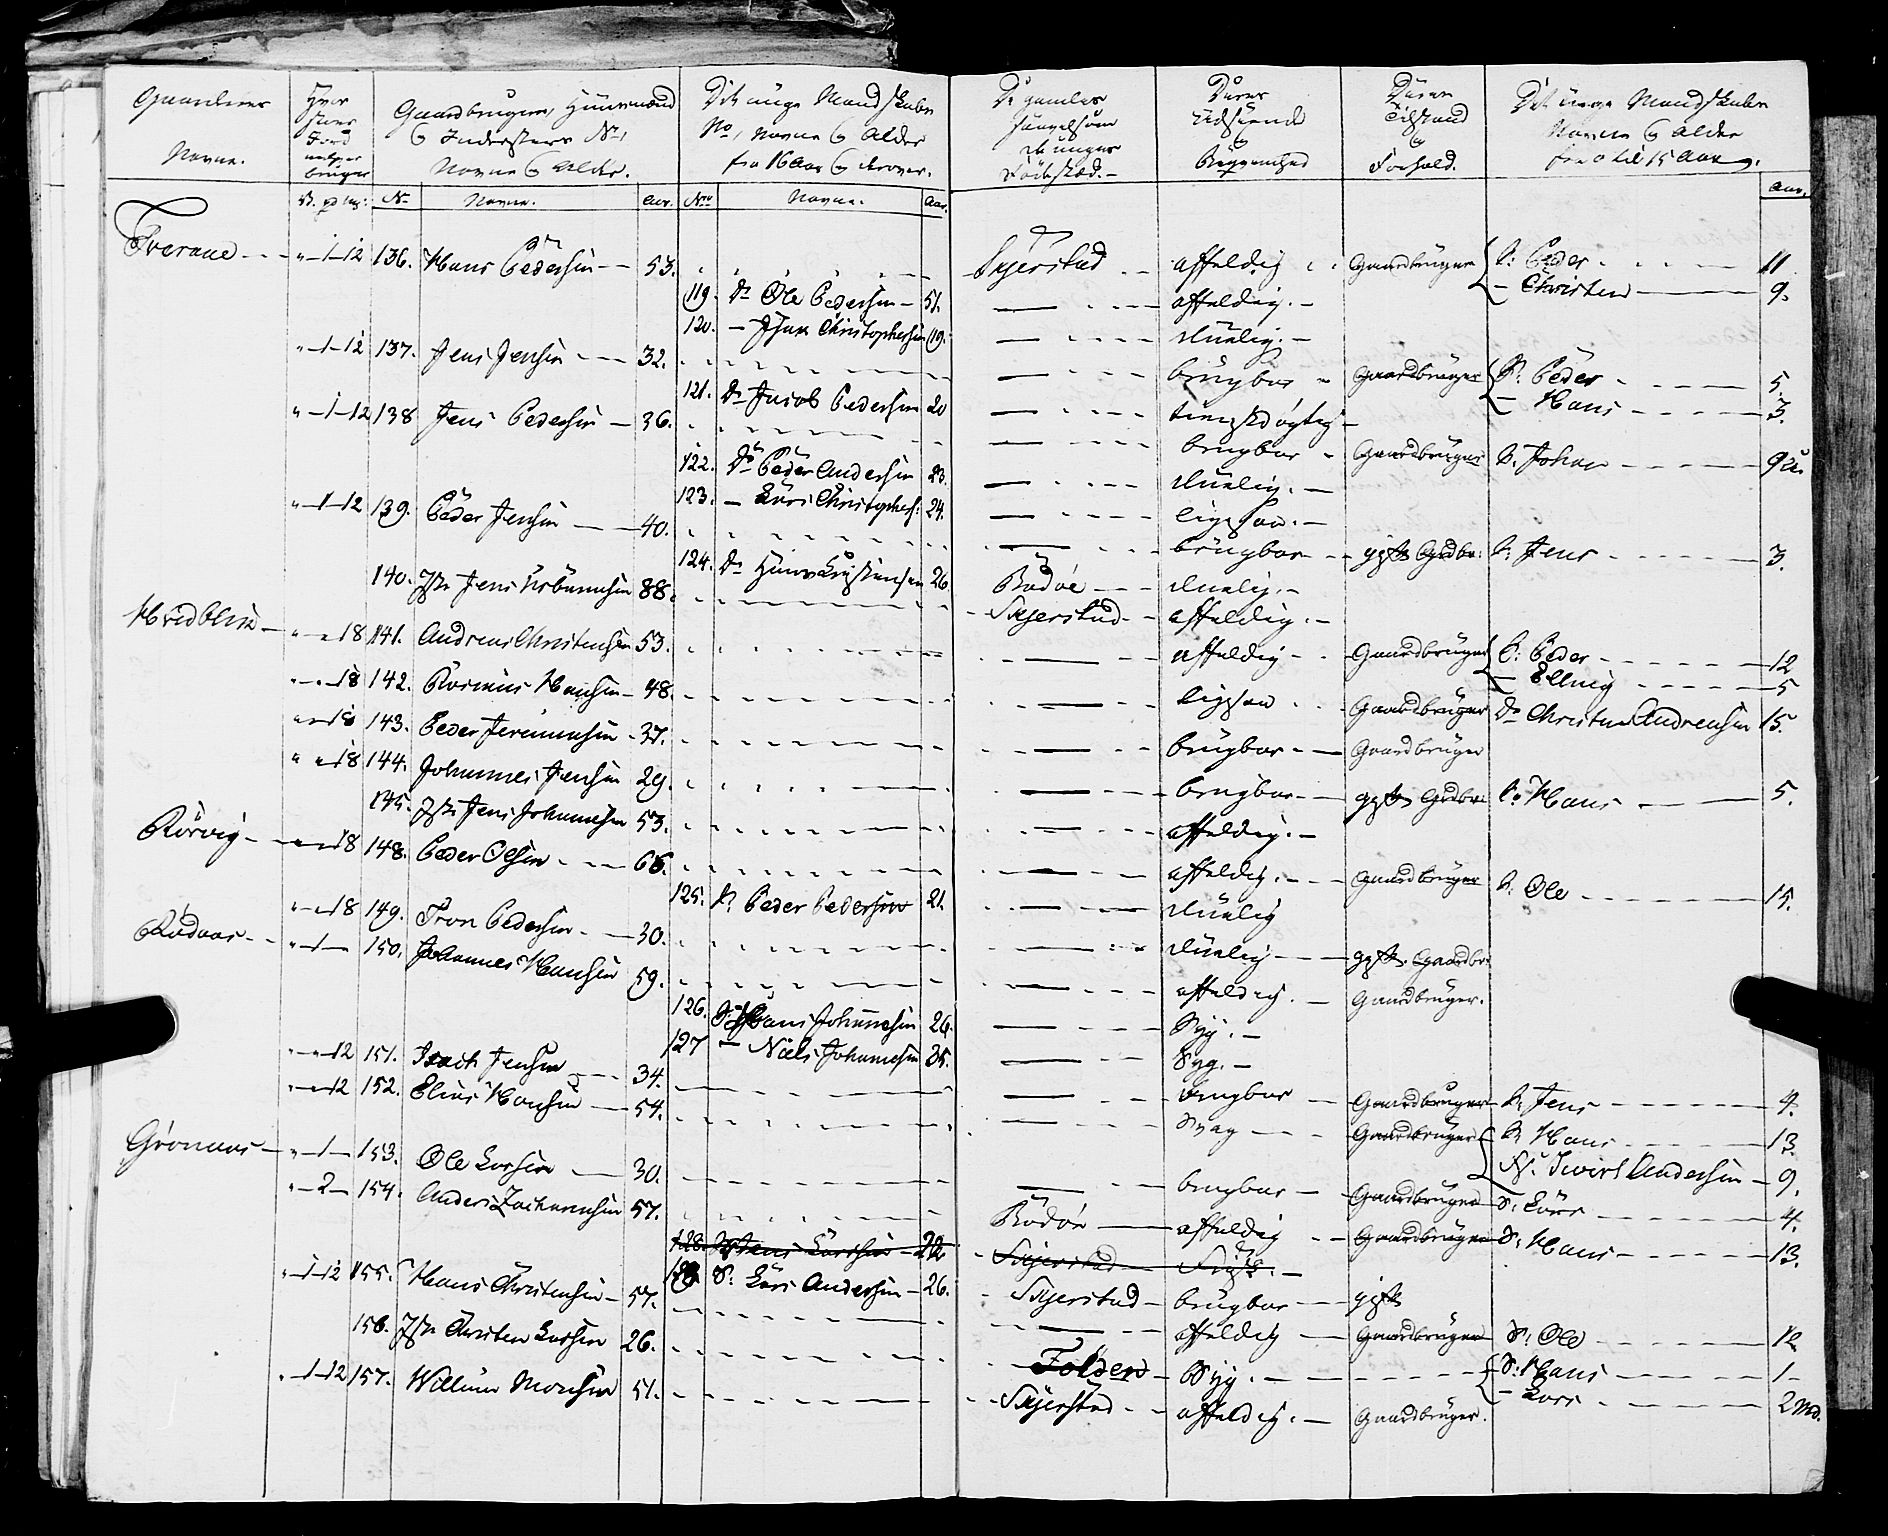 Gaardenes Navne.
Gaardbrugere, Huusmænd & Indersters No, Navne & Alder.
Det unge Mandskabs No, Navne & Alder fra 16 Aar & derover.
De gamles saavelsom de unges Fødested.
Deres Udseende & Begvemhed
Deres Tilstand & Forhold.
Det unge Mandskabs Navne & Alder fra 0 til 15 Aar.
No Navne. Aar. No Navne. Aar. Aar.
Tveraae " - 1 - 12 136. Hans Pedersen 53. Skjerstad affeldig Gaardbruger S: Peder 11
- Christen 9.
119. Dr Ole Pedersen 51. affeldig.
120. - Isak Christophersen 19. duelig.
" - 1 - 12 137. Jens Jensen 32. brugbar Gaardbruger S: Peder 5.
- Hans 3.
121. Dr Jacob Pedersen 20 tienstdygtig
" - 1 - 12 138 Jens Pedersen 36. brugbar Gaardbruger S: Johan 9 u.
122. Dr Peder Andersen 23. duelig.
123. - Lars Christophers: 24. ligesaa.
" - 1 - 12 139. Peder Jensen 40. brugbar gift Grdbr: S: Jens 3.
124. Dr 26 Bodøe duelig.
140. Jens 88. Skjerstad affeldig.
" - " 18 141. Andreas Christensen 53. affeldig Gaardbruger S: Peder 12
- Elling 5
" - " 18 142. Rasmus Hansen 48. ligesaa Gaardbruger Dr Christen Andreasen 15.
" - " 18 143. Peder Jeremiasen 37. brugbar Gaardbruger
" " 18 144. Johannes Jensen 29. brugbar gift Grdbr: S: Hans 5.
145. Jens Johannesen 53. affeldig.
Rørvig " - " 18 148. Peder Olsen 66. affeldig. Gaardbruger S: Ole 15.
125. S: Peder Pedersen 21. duelig
" - " 18 149. Tron Pedersen 30. duelig gift Gaardbr:
" - 1 - 150. Johannes Hansen 59. affeldig. Gaardbruger.
126. S: Hans Johannesen 26. Syg.
127 - Niels Johannesen 25. Syg.
" - " 12 151. Isach Jensen 34. brugbar Gaardbruger S: Jens 4.
" - " 12 152. Elias Hansen 54. Svag Gaardbruger S: Hans 13.
Andersen 9.
Grønaas " - 1 - 153. Ole Larsen 30. brugbar Gaardbruger S: Lars 4.
" - 2 - 154. Anders Zachariasen 57. Bodøe affeldig Gaardbruger S: Hans 13.
128. S: Jens Larsen 22 Skjerstad
S: Lars Andersen 26. Skjerstad brugbar gift
" - 1 - 12 155. Hans Christensen 57. affeldig Gaardbruger S: Ole 12
156. Christen Larsen 26. Folden Syg. S: Hans 1
- Lars 2 Md.
" - 1 - 12 157. Willum Monsen 51. Skjerstad affeldig. Gaardbruger.